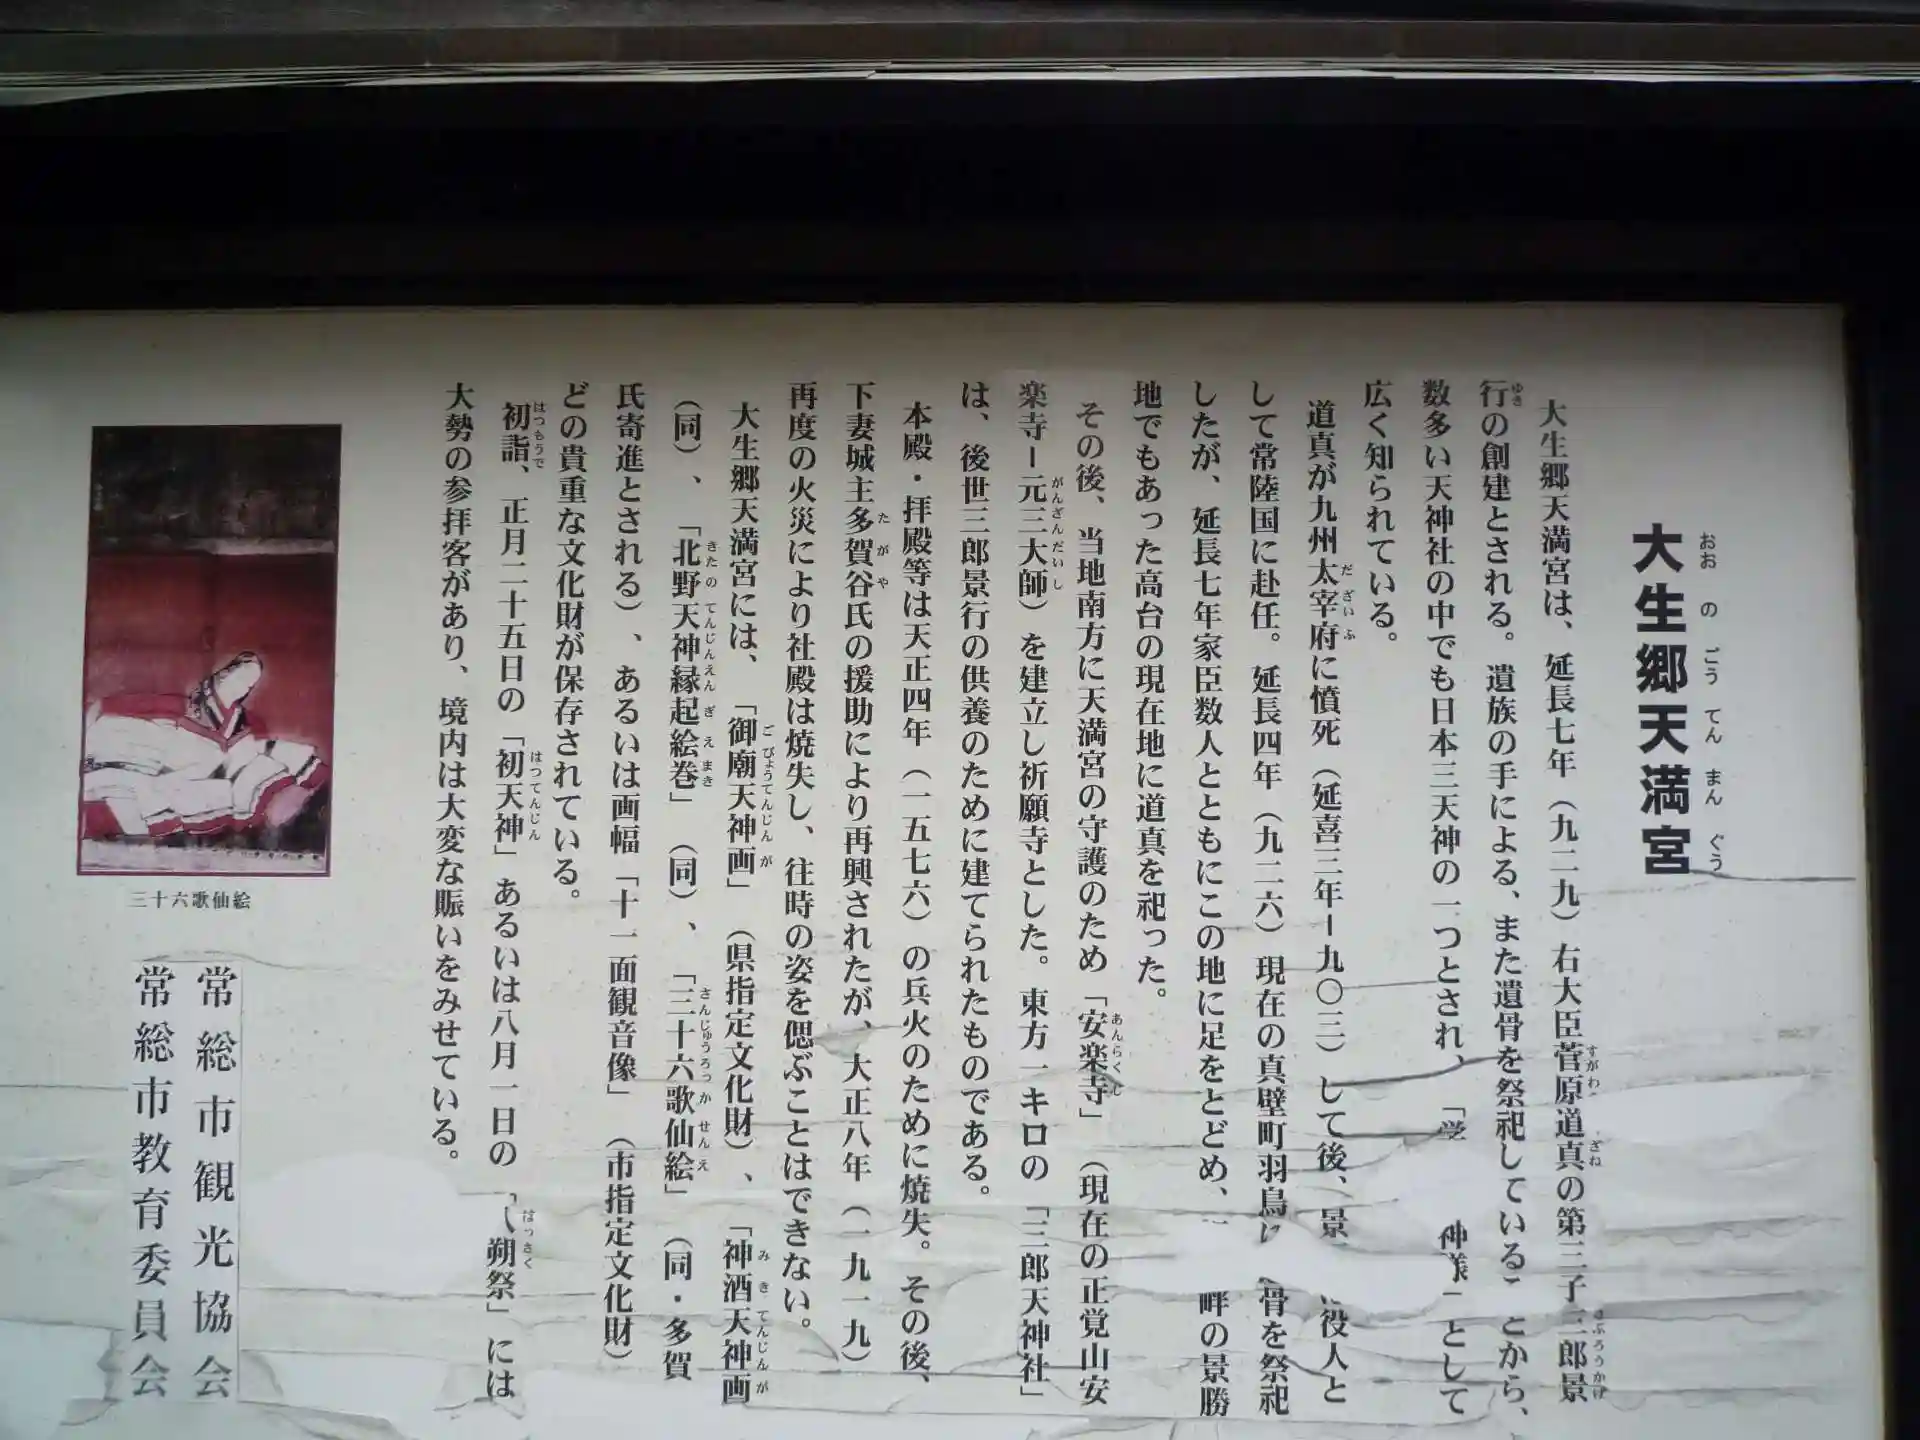 大生郷天満宮
おおのごうてんまんぐう
大生郷天満宮は、延長七年（九二九）右大臣菅原道真の第三子三郎景
行の創建とされる。遺族の手による、また遺骨を祭祀していることから、
数多い天神社の中でも日本三天神の一つとされ、「学 神様」として
広く知られている。
道真が九州太宰府に憤死（延喜三年ー九〇三）して後、景 役人と
して常陸国に赴任。延長四年（九二六）現在の真壁町羽鳥に 骨を祭祀
したが、延長七年家臣数人とともにこの地に足をとどめ、 畔の景勝
地でもあった高台の現在地に道真を祀った。
その後、当地南方に天満宮の守護のため「安楽寺」（現在の正覚山安
楽寺ー元三大師）を建立し祈願寺とした。東方一キロの「三郎天神社」
は、後世三郎景行の供養のために建てられたものである。
本殿・拝殿等は天正四年（一五七六）の兵火のために焼失。その後、
下妻城主多賀谷氏の援助により再興されたが、大正八年（一九一九）
再度の火災により社殿は焼失し、往時の姿を偲ぶことはできない。
大生郷天満宮には、「御廟天神画」（県指定文化財）、「神酒天神画
（同）、「北野天神縁起絵巻」（同）、「三十六歌仙絵」（同・多賀
氏寄進とされる）、あるいは画幅「十一面観音像」（市指定文化財）
どの貴重な文化財が保存されている。
初詣、正月二十五日の「初天神」あるいは八月一日の「八朔祭」には
大勢の参拝客があり、境内は大変な賑いをみせている。
三十六歌仙絵
常総市観光協会
常総市教育委員会